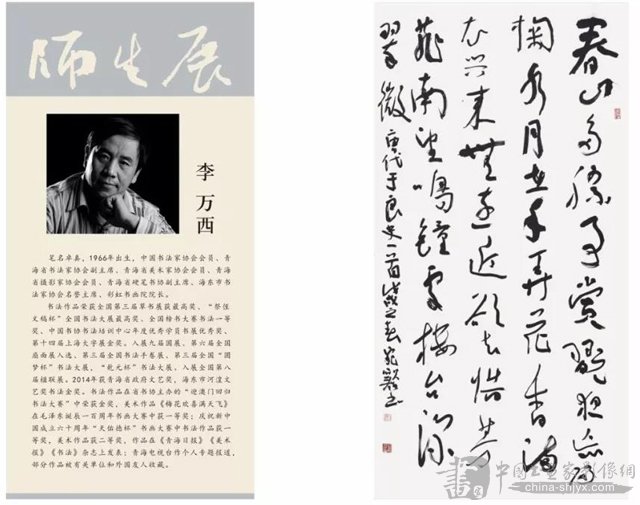 师生展
李万西
笔名卓真，1966年出生，中国书法家协会会员、青
海省书法家协会副主席、青海省美术家协会会员、青海
省摄影家协会会员、青海省硬笔书协副主席、海东市书
法家协会名誉主席、彩虹书画院院长。
书法作品荣获全国第三届草书展获最高奖、“祭侄
文稿杯”全国书法大展最高奖、全国榜书大赛书法一等
奖、中国书协书法培训中心年度优秀学员书展优秀奖、
第十四届上海大学展金奖、入展九届国展、第六届全国
扇面展入选、第三届全国书法手卷展、第三届全国“圆
梦杯”书法大展、“乾元杯”书法大展、入展全国第八
届楹联展。2014年获青海省政府文艺奖，海东市河湟文
艺奖书法金奖。书法作品在省书协主办的“迎澳门回归
书法大赛”中荣获金奖，美术作品《梅花欢喜满天飞》
在毛泽东诞辰一百周年书画大赛中获一等奖；庆祝新中
国成立六十周年“天佑德杯”书画大赛中书法作品获一
等奖，美术作品获二等奖，作品在《青海日报》《美术
报》《书法》杂志上发表；青海电视台作个人专题报道，
部分作品被有关单位和外国友人收藏。
春山多勝事賞翫夜忘归
掬水月在手弄花香满
衣兴来無远近欲去惜芳
菲南望鳴鐘處楼台深
翠微 唐代于良史一首 之春
中国书画家影像网
china-shjyx.com